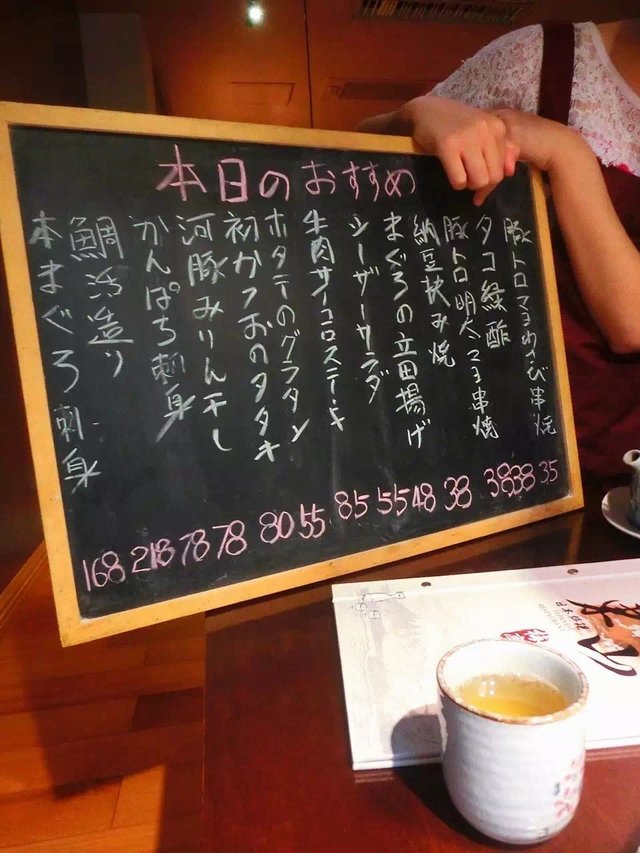 本日のおすすめ
豚トロマヨわさび串焼 35
タコ緑酢 38
豚トロ明太マヨ串焼 38
納豆挟み焼 38
まぐろの立田揚げ 48
シーザーサラダ 55
牛肉サイコロステーキ 85
ホタテのグラタン 55
初かつおのタタキ 80
河豚みりん干し 78
かんぱち刺身 78
鯛活造り 218
本まぐろ刺身 168